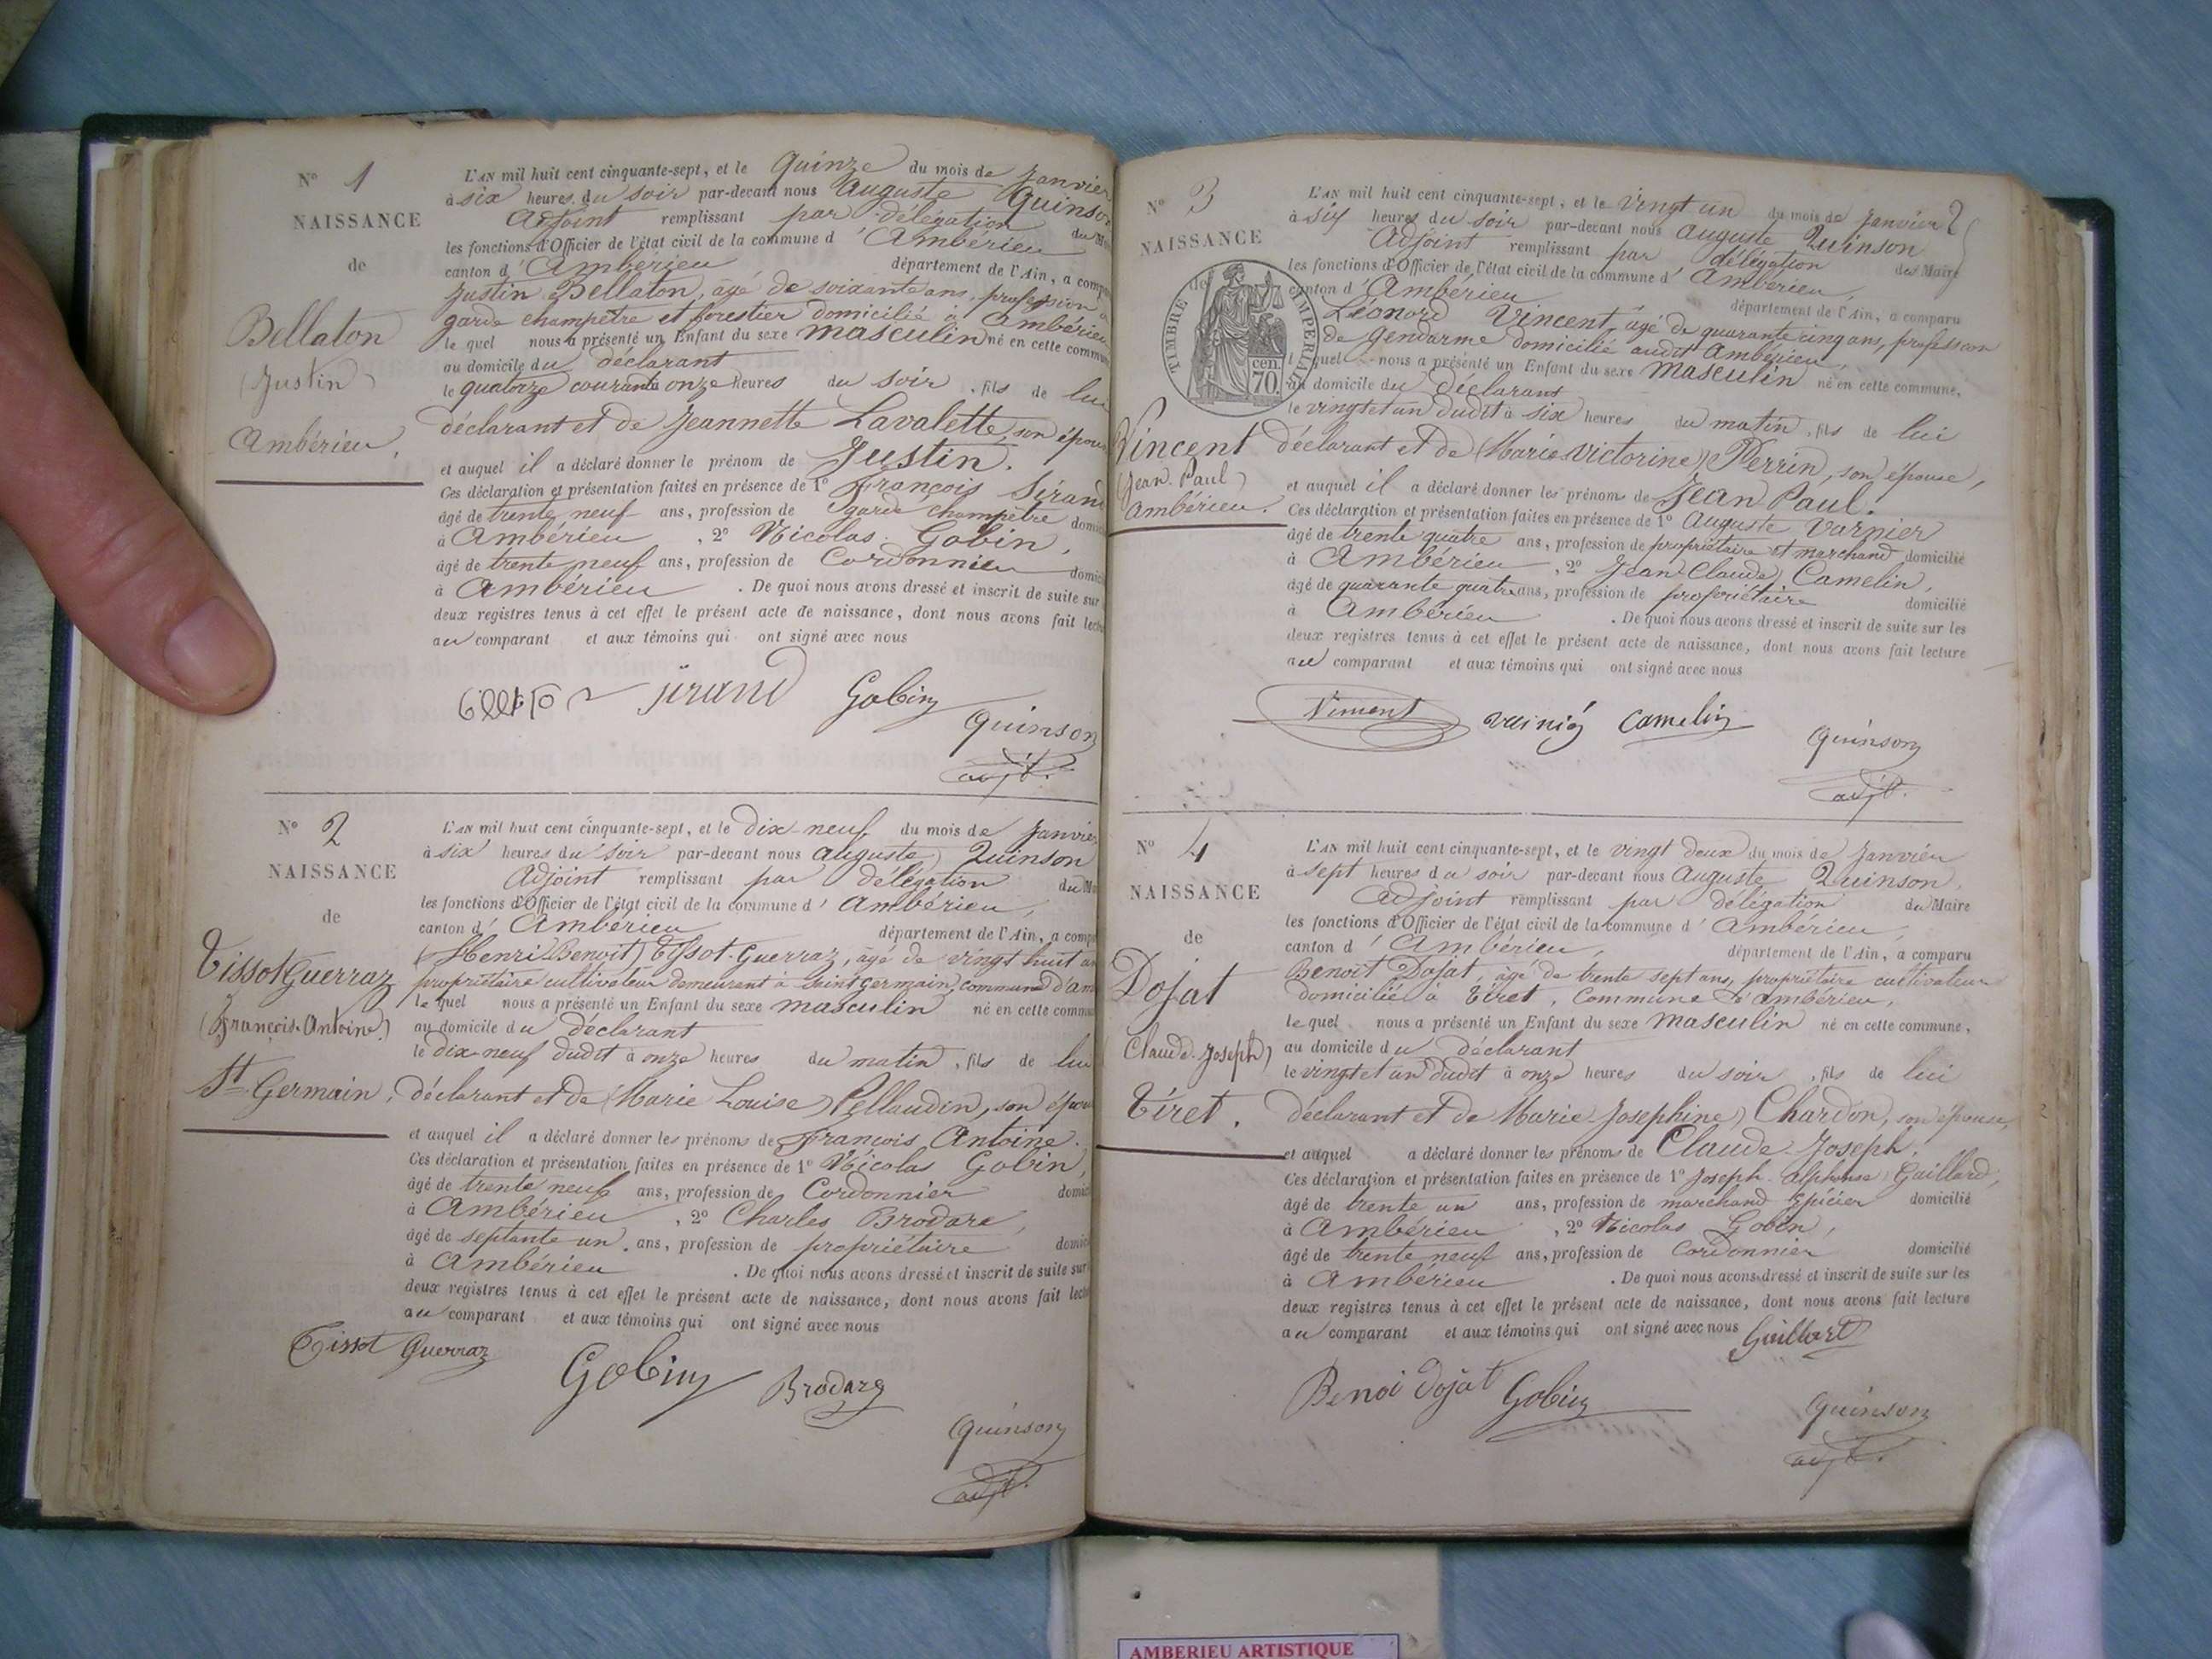 N° 1
NAISSANCE
de
Bellaton
(Justin)
Ambérieu.
L'AN mil huit cent cinquante-sept, et le Quinze du mois de Janvier
à six heures du soir par-devant nous Auguste Quinson
Adjoint remplissant par délégation du
les fonctions d'Officier de l'état civil de la commune d'Ambérieu
canton d'Ambérieu département de l'Ain, a
Justin Bellaton, âgé de soixante ans, profession
garde champêtre et forestier domicilié à Ambérieu
le quel nous a présenté un Enfant du sexe masculin né en cette
au domicile du déclarant
le quatorze courant à onze heures du soir, fils de lui
déclarant et de Jeannette Lavalette, son
et auquel il a déclaré donner le prénom de Justin.
Ces déclaration et présentation faites en présence de 1° François Sirand
âgé de trente neuf ans, profession de garde champêtre
à Ambérieu, 2° Nicolas Gobin,
âgé de trente neuf ans, profession de Cordonnier
à Ambérieu. De quoi nous avons dressé et inscrit de suite sur
deux registres tenus à cet effet le présent acte de naissance, dont nous avons fait
au comparant et aux témoins qui ont signé avec nous
Gobin
Quinson
adjt.
N° 2
NAISSANCE
de
Tissot Guerraz
(François Antoine)
St Germain.
L'AN mil huit cent cinquante-sept, et le Dix-neuf du mois de Janvier
à six heures du soir par-devant nous Auguste Quinson
Adjoint remplissant par délégation du
les fonctions d'Officier de l'état civil de la commune d'Ambérieu,
canton d'Ambérieu département de l'Ain, a
(Henri Benoit) Tissot-Guerraz, âgé de vingt huit
propriétaire cultivateur demeurant à Saint Germain, commune
le quel nous a présenté un Enfant du sexe masculin né en cette
au domicile du déclarant
le dix-neuf dudit à onze heures du matin, fils de lui
déclarant et de (Marie Louise) Pellaudin, son
et auquel il a déclaré donner les prénoms de François Antoine.
Ces déclaration et présentation faites en présence de 1° Nicolas Gobin,
âgé de trente neuf ans, profession de Cordonnier
à Ambérieu, 2° Charles Brodare,
âgé de septante un ans, profession de propriétaire
à Ambérieu. De quoi nous avons dressé et inscrit de suite sur
deux registres tenus à cet effet le présent acte de naissance, dont nous avons fait
au comparant et aux témoins qui ont signé avec nous
Tissot Guerraz
Gobin
Quinson
adjt.
N° 3
NAISSANCE
de
TIMBRE IMPERIAL
cen.
70.
Vincent
(Jean Paul)
Ambérieu.
L'AN mil huit cent cinquante-sept, et le vingt un du mois de Janvier
à six heures du soir par-devant nous Auguste Quinson
Adjoint remplissant par délégation du Maire
les fonctions d'Officier de l'état civil de la commune d'Ambérieu,
canton d'Ambérieu département de l'Ain, a comparu
Léonard Vincent, âgé de quarante cinq ans, profession
de Gendarme domicilié audit Ambérieu,
le quel nous a présenté un Enfant du sexe masculin né en cette commune,
au domicile du déclarant
le vingt et un dudit à six heures du matin, fils de lui
déclarant et de (Marie Victorine) Perrin, son épouse,
et auquel il a déclaré donner les prénoms de Jean Paul.
Ces déclaration et présentation faites en présence de 1° Auguste Varnier
âgé de trente quatre ans, profession de propriétaire et marchand domicilié
à Ambérieu, 2° Jean Claude Camelin,
âgé de quarante quatre ans, profession de propriétaire domicilié
à Ambérieu. De quoi nous avons dressé et inscrit de suite sur les
deux registres tenus à cet effet le présent acte de naissance, dont nous avons fait lecture
au comparant et aux témoins qui ont signé avec nous
Vincent Camelin
Quinson
adjt.
N° 4
NAISSANCE
de
Dojat
(Claude Joseph)
Tiret.
L'AN mil huit cent cinquante-sept, et le vingt deux du mois de Janvier
à sept heures du soir par-devant nous Auguste Quinson,
Adjoint remplissant par délégation du Maire
les fonctions d'Officier de l'état civil de la commune d'Ambérieu,
canton d'Ambérieu, département de l'Ain, a comparu
Benoît Dojat, âgé de trente sept ans, propriétaire cultivateur
domicilié à Tiret, Commune d'Ambérieu,
le quel nous a présenté un Enfant du sexe masculin né en cette commune,
au domicile du déclarant
le vingt et un dudit à onze heures du soir, fils de lui
déclarant et de Marie Josephine) Chardon, son épouse,
et auquel a déclaré donner les prénoms de Claude Joseph.
Ces déclaration et présentation faites en présence de 1° Joseph Alphonse Gaillard,
âgé de trente un ans, profession de marchand Epicier domicilié
à Ambérieu, 2° Nicolas Gobin,
âgé de trente neuf ans, profession de Cordonnier domicilié
à Ambérieu. De quoi nous avons dressé et inscrit de suite sur les
deux registres tenus à cet effet le présent acte de naissance, dont nous avons fait lecture
au comparant et aux témoins qui ont signé avec nous
Benoi Dojat Gobin
Quinson
adjt.
AMBERIEU ARTISTIQUE